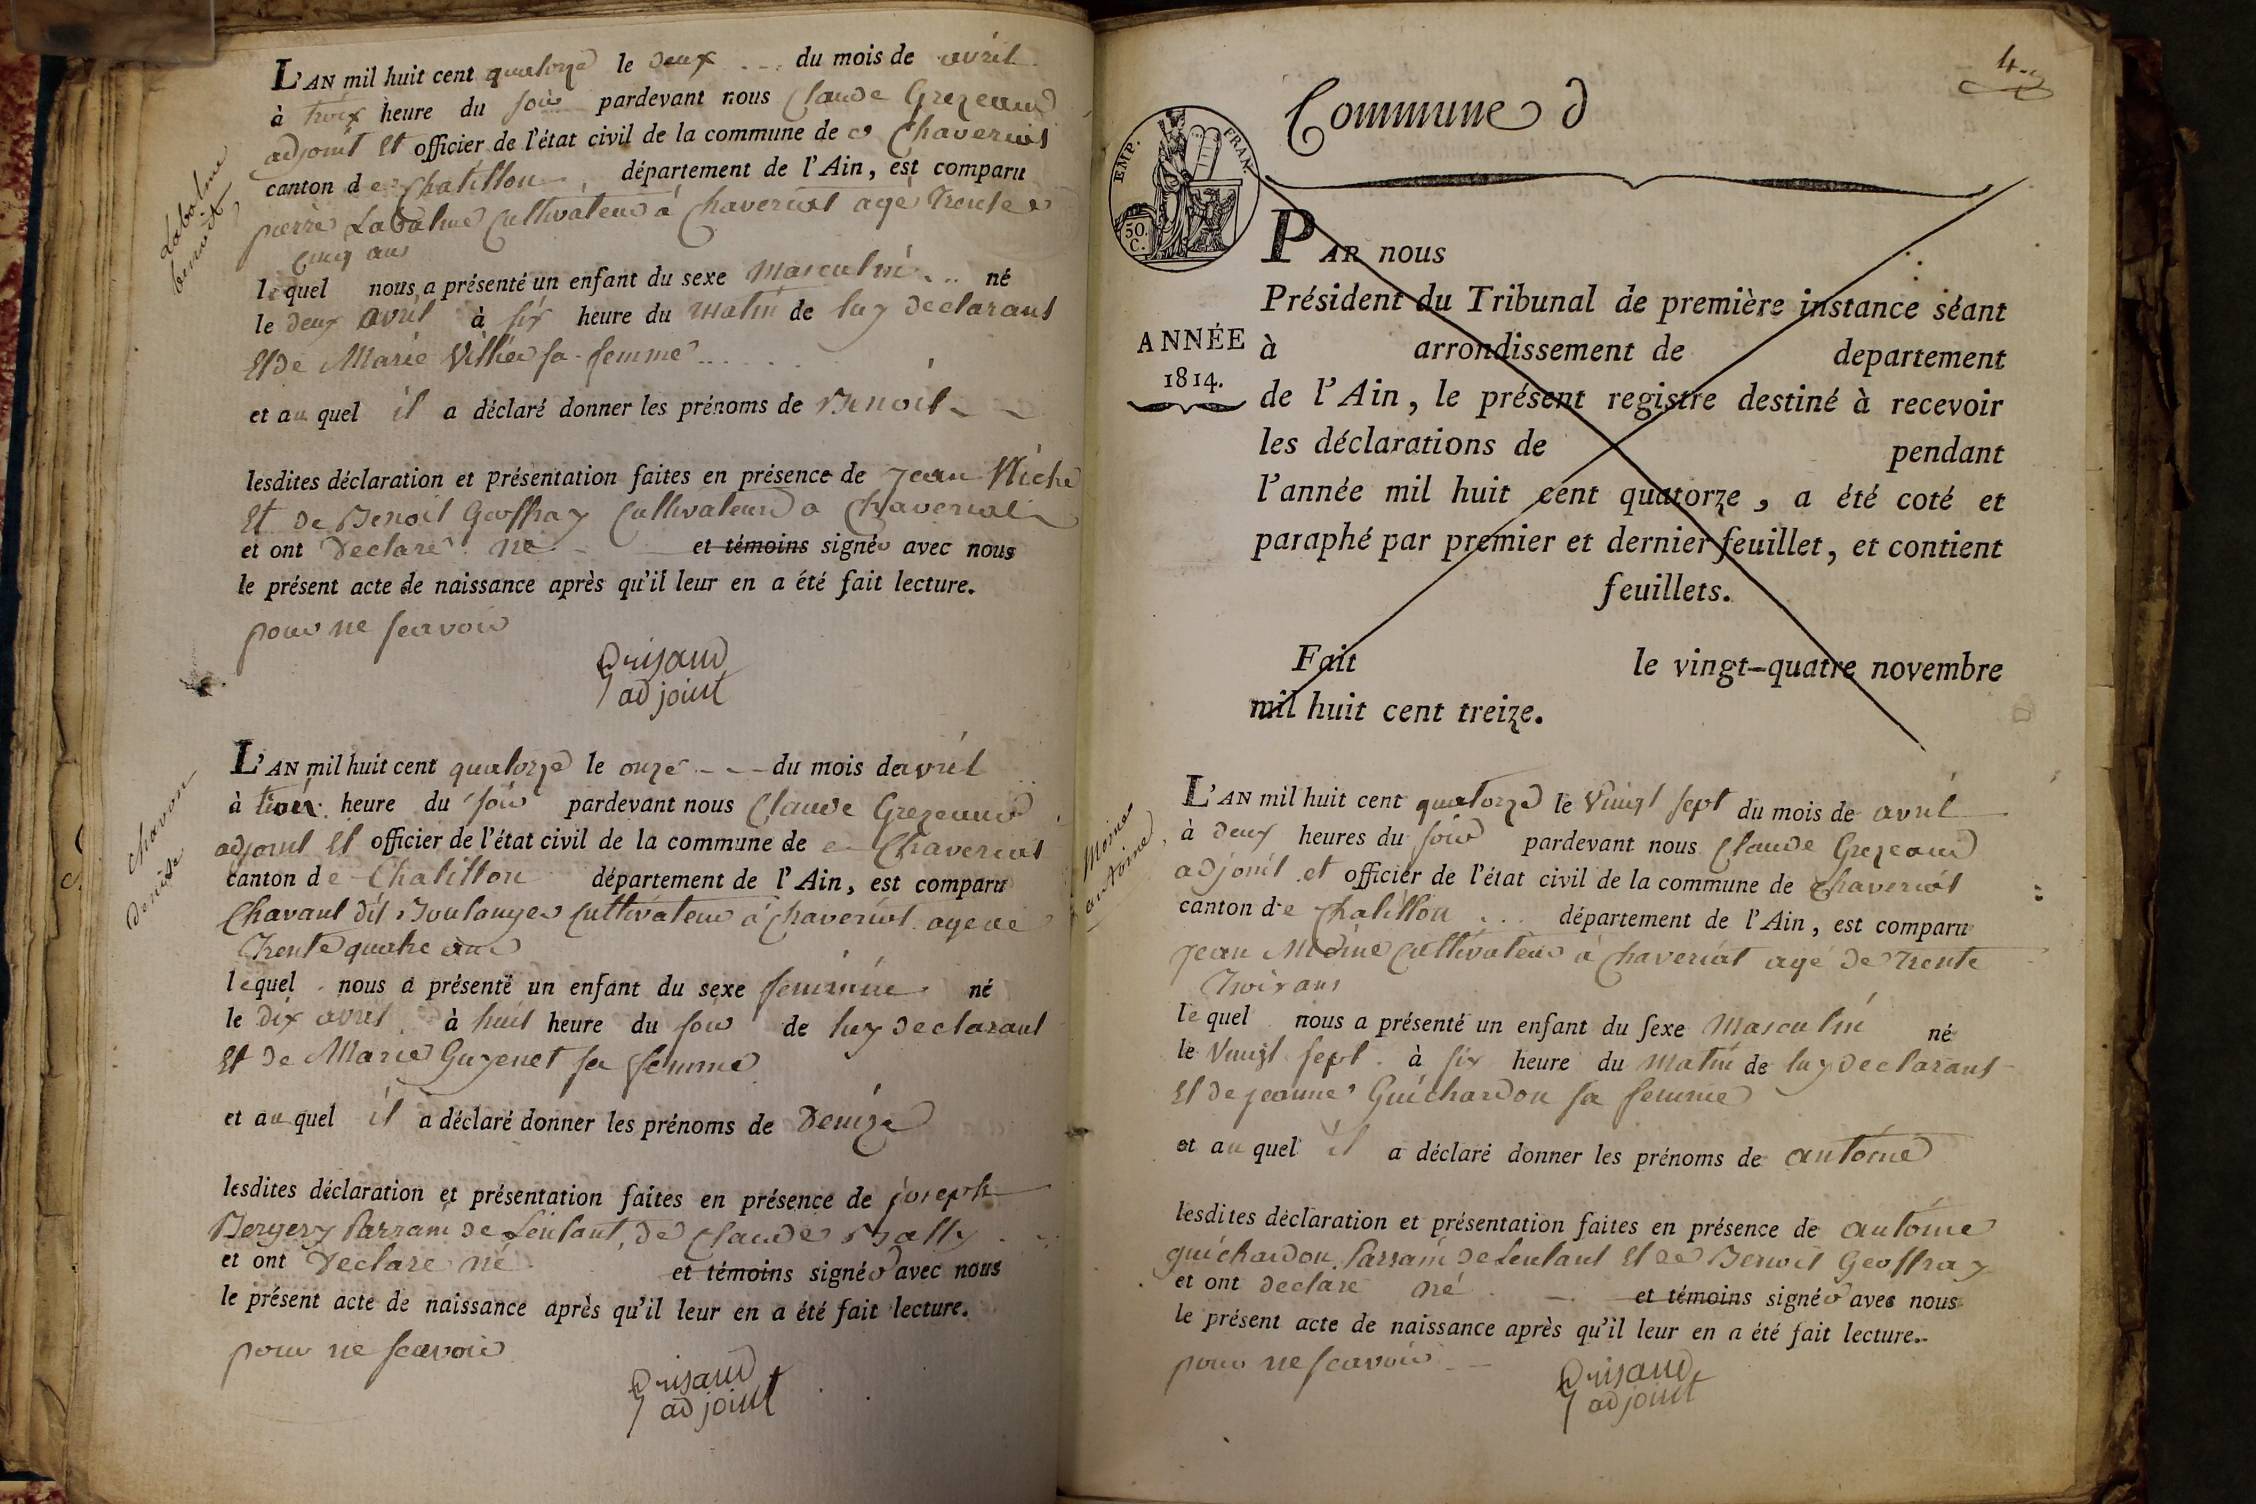 Labalme
benoit
L'AN mil huit cent quatorze le deux du mois de avril
à trois heure du soir pardevant nous Claude Grezeaud
adjoint Et officier de l'état civil de la commune de Chaveriat
canton de Chatillon département de l'Ain, est comparu
pierre Labalme Cultivateur a Chaveriat agé Trente
Cinq ans
lequel nous a présenté un enfant du sexe Masculin né
le deux avril à six heure du matin de luy declarant
Et de Marie Villier sa femme
et au quel il a déclaré donner les prénoms de Benoit
lesdites déclaration et présentation faites en présence de Jean
Et de Benoit Geoffray Cultivateurs a Chaveriat
et ont Declaré ne et témoins signés avec nous
le présent acte de naissance après qu'il leur en a été fait lecture.
pour ne scavoir
adjoint
chavon
denise
L'AN mil huit cent quatorze le onze du mois de avril
à trois heure du soir pardevant nous Claude Grezeaud
adjoint Et officier de l'état civil de la commune de Chaveriat
canton de Chatillon département de l'Ain, est comparu
Chavant dit Boulanger Cultivateur a Chaveriat age de
Trente quatre ans
lequel nous a présenté un enfant du sexe feminine né
le dix avril à huit heure du soir de luy declarant
Et de Marie Guyenet sa femme
et au quel il a déclaré donner les prénoms de Denize
lesdites déclaration et présentation faites en présence de joseph
Bergery Parrain de Lenfant, de Claude Bally
et ont Declare né et témoins signés avec nous
le présent acte de naissance après qu'il leur en a été fait lecture.
pour ne scavoir
adjoint
4
Commune d
EMP. FRAN.
50.
C.
ANNÉE
1814.
PAR nous
Président du Tribunal de première instance séant
à arrondissement de departement
de l'Ain, le présent registre destiné à recevoir
les déclarations de pendant
l'année mil huit cent quatorze, a été coté et
paraphé par premier et dernier feuillet, et contient
feuillets.
Fait le vingt-quatre novembre
mil huit cent treize.
Moine
antoine
L'AN mil huit cent quatorze le Vingt sept du mois de avril
à deux heures du soir pardevant nous Claude Grezeaud
adjoint et officier de l'état civil de la commune de Chaveriat
canton de Chatillon département de l'Ain, est comparu
jean Moine Cultivateur a Chaveriat agé de Trente
Trois ans
lequel nous a présenté un enfant du sexe Masculin né
le Vingt sept à six heure du matin de luy declarant
Et de jeanne Guichardon sa femme
et au quel il a déclaré donner les prénoms de antoine
lesdites déclaration et présentation faites en présence de antoine
guichardon Parrain de Lenfant Et de Benoit Geoffray
et ont declare né et témoins signés avec nous
le présent acte de naissance après qu'il leur en a été fait lecture.
pour ne scavoir
adjoint